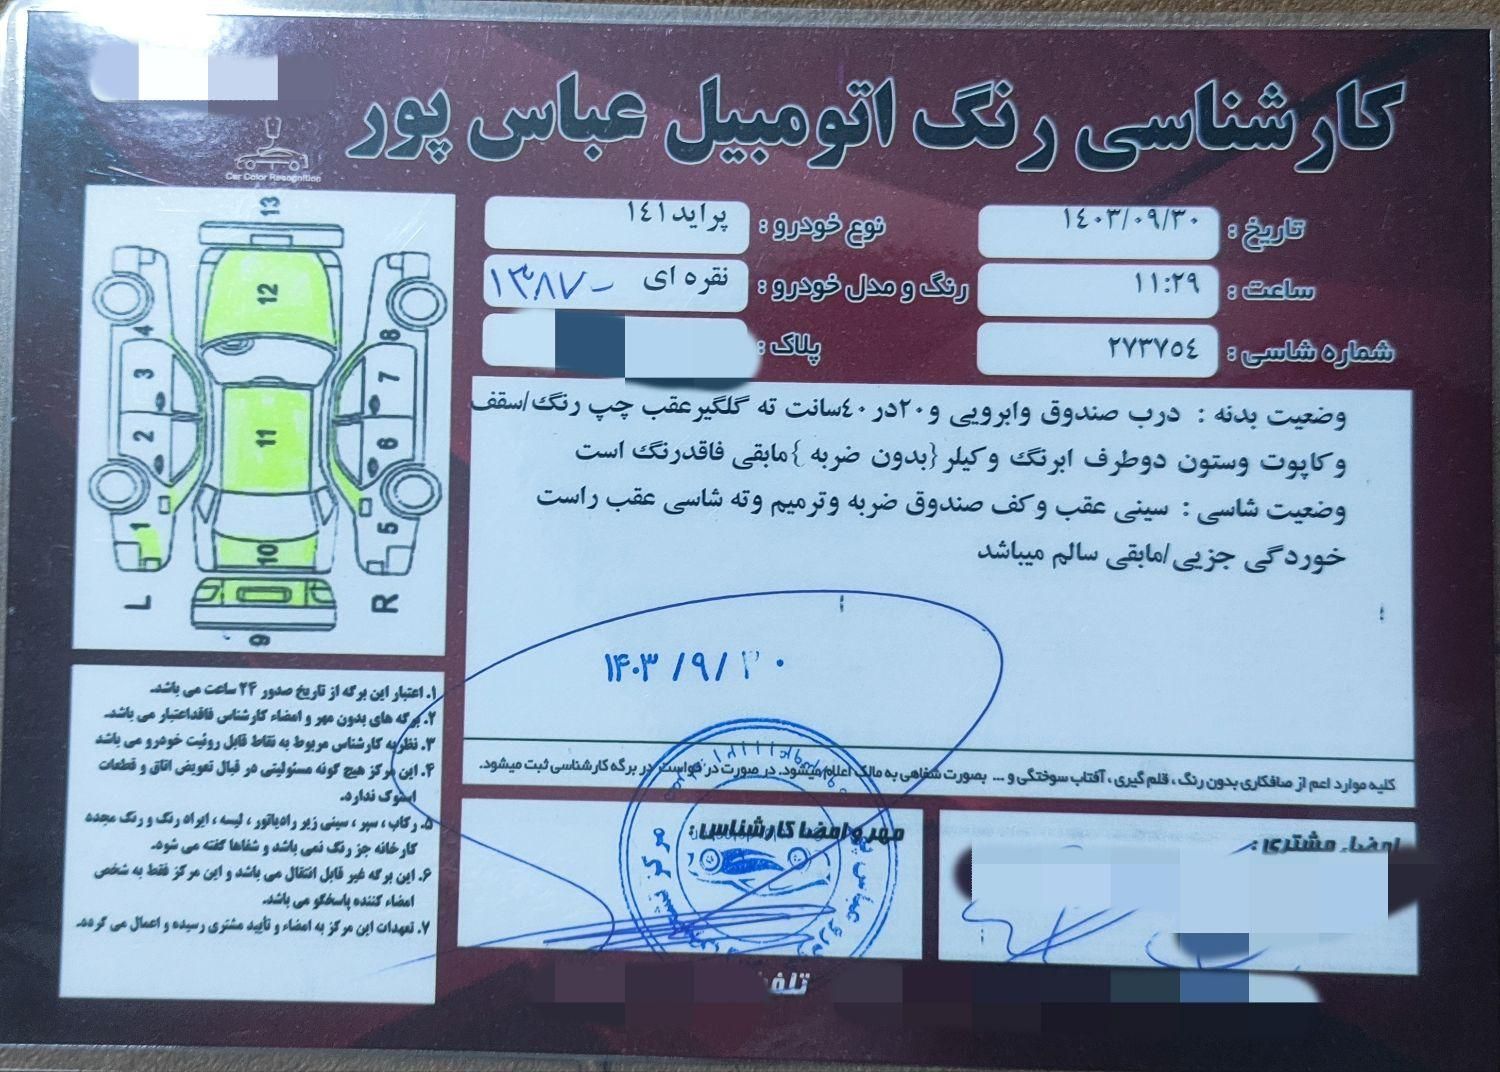 کارشناسی رنگ اتومبیل عباس پور
Car Color Recognition
تاریخ : ۱٤۰۳/۰۹/۳۰
نوع خودرو : پراید۱٤۱
ساعت : ۱۱:۲۹
رنگ و مدل خودرو : نقره ای - ۱۳۸۷
شماره شاسی : ۲۷۳۷٥٤
پلاک :
وضعیت بدنه : درب صندوق وابرویی و۲۰در٤۰سانت ته گلگیرعقب چپ رنگ/سقف
وکاپوت وستون دوطرف ابرنگ وکیلر{بدون ضربه}مابقی فاقدرنگ است
وضعیت شاسی : سینی عقب وکف صندوق ضربه وترمیم وته شاسی عقب راست
خوردگی جزیی/مابقی سالم میباشد
۱۴۰۳/۹/۳۰
کلیه موارد اعم از صافکاری بدون رنگ ، قلم گیری ، آفتاب سوختگی و ... بصورت شفاهی به مالک اعلام میشود. در صورت درخواست در برگه کارشناسی ثبت میشود.
مهر و امضا کارشناس :
امضاء مشتری :
تلفن
13
12
11
10
9
4
3
2
1
L
8
7
6
5
R
۱. اعتبار این برگه از تاریخ صدور ۲۴ ساعت می باشد.
۲. برگه های بدون مهر و امضاء کارشناس فاقداعتبار می باشد.
۳. نظریه کارشناس مربوط به نقاط قابل روئیت خودرو می باشد
۴. این مرکز هیچ گونه مسئولیتی در قبال تعویض اتاق و قطعات
استوک ندارد.
۵. رکاب ، سپر ، سینی زیر رادیاتور ، لیسه ، ایراد رنگ و رنگ مجدد
کارخانه جز رنگ نمی باشد و شفاها گفته می شود.
۶. این برگه غیر قابل انتقال می باشد و این مرکز فقط به شخص
امضاء کننده پاسخگو می باشد.
۷. تعهدات این مرکز به امضاء و تأیید مشتری رسیده و اعمال می گردد.